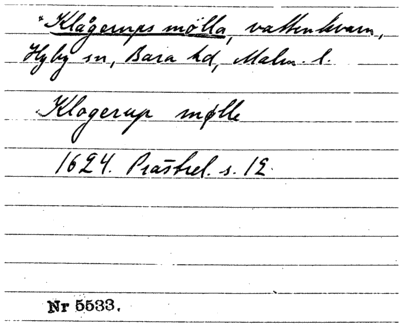 *Klågerups mølla, vattenkvarn,
Hyby sn, Bara hd, Malm. l.
Klogerup mølle
1624. Prästrel. s. 12.
Nr 5533.